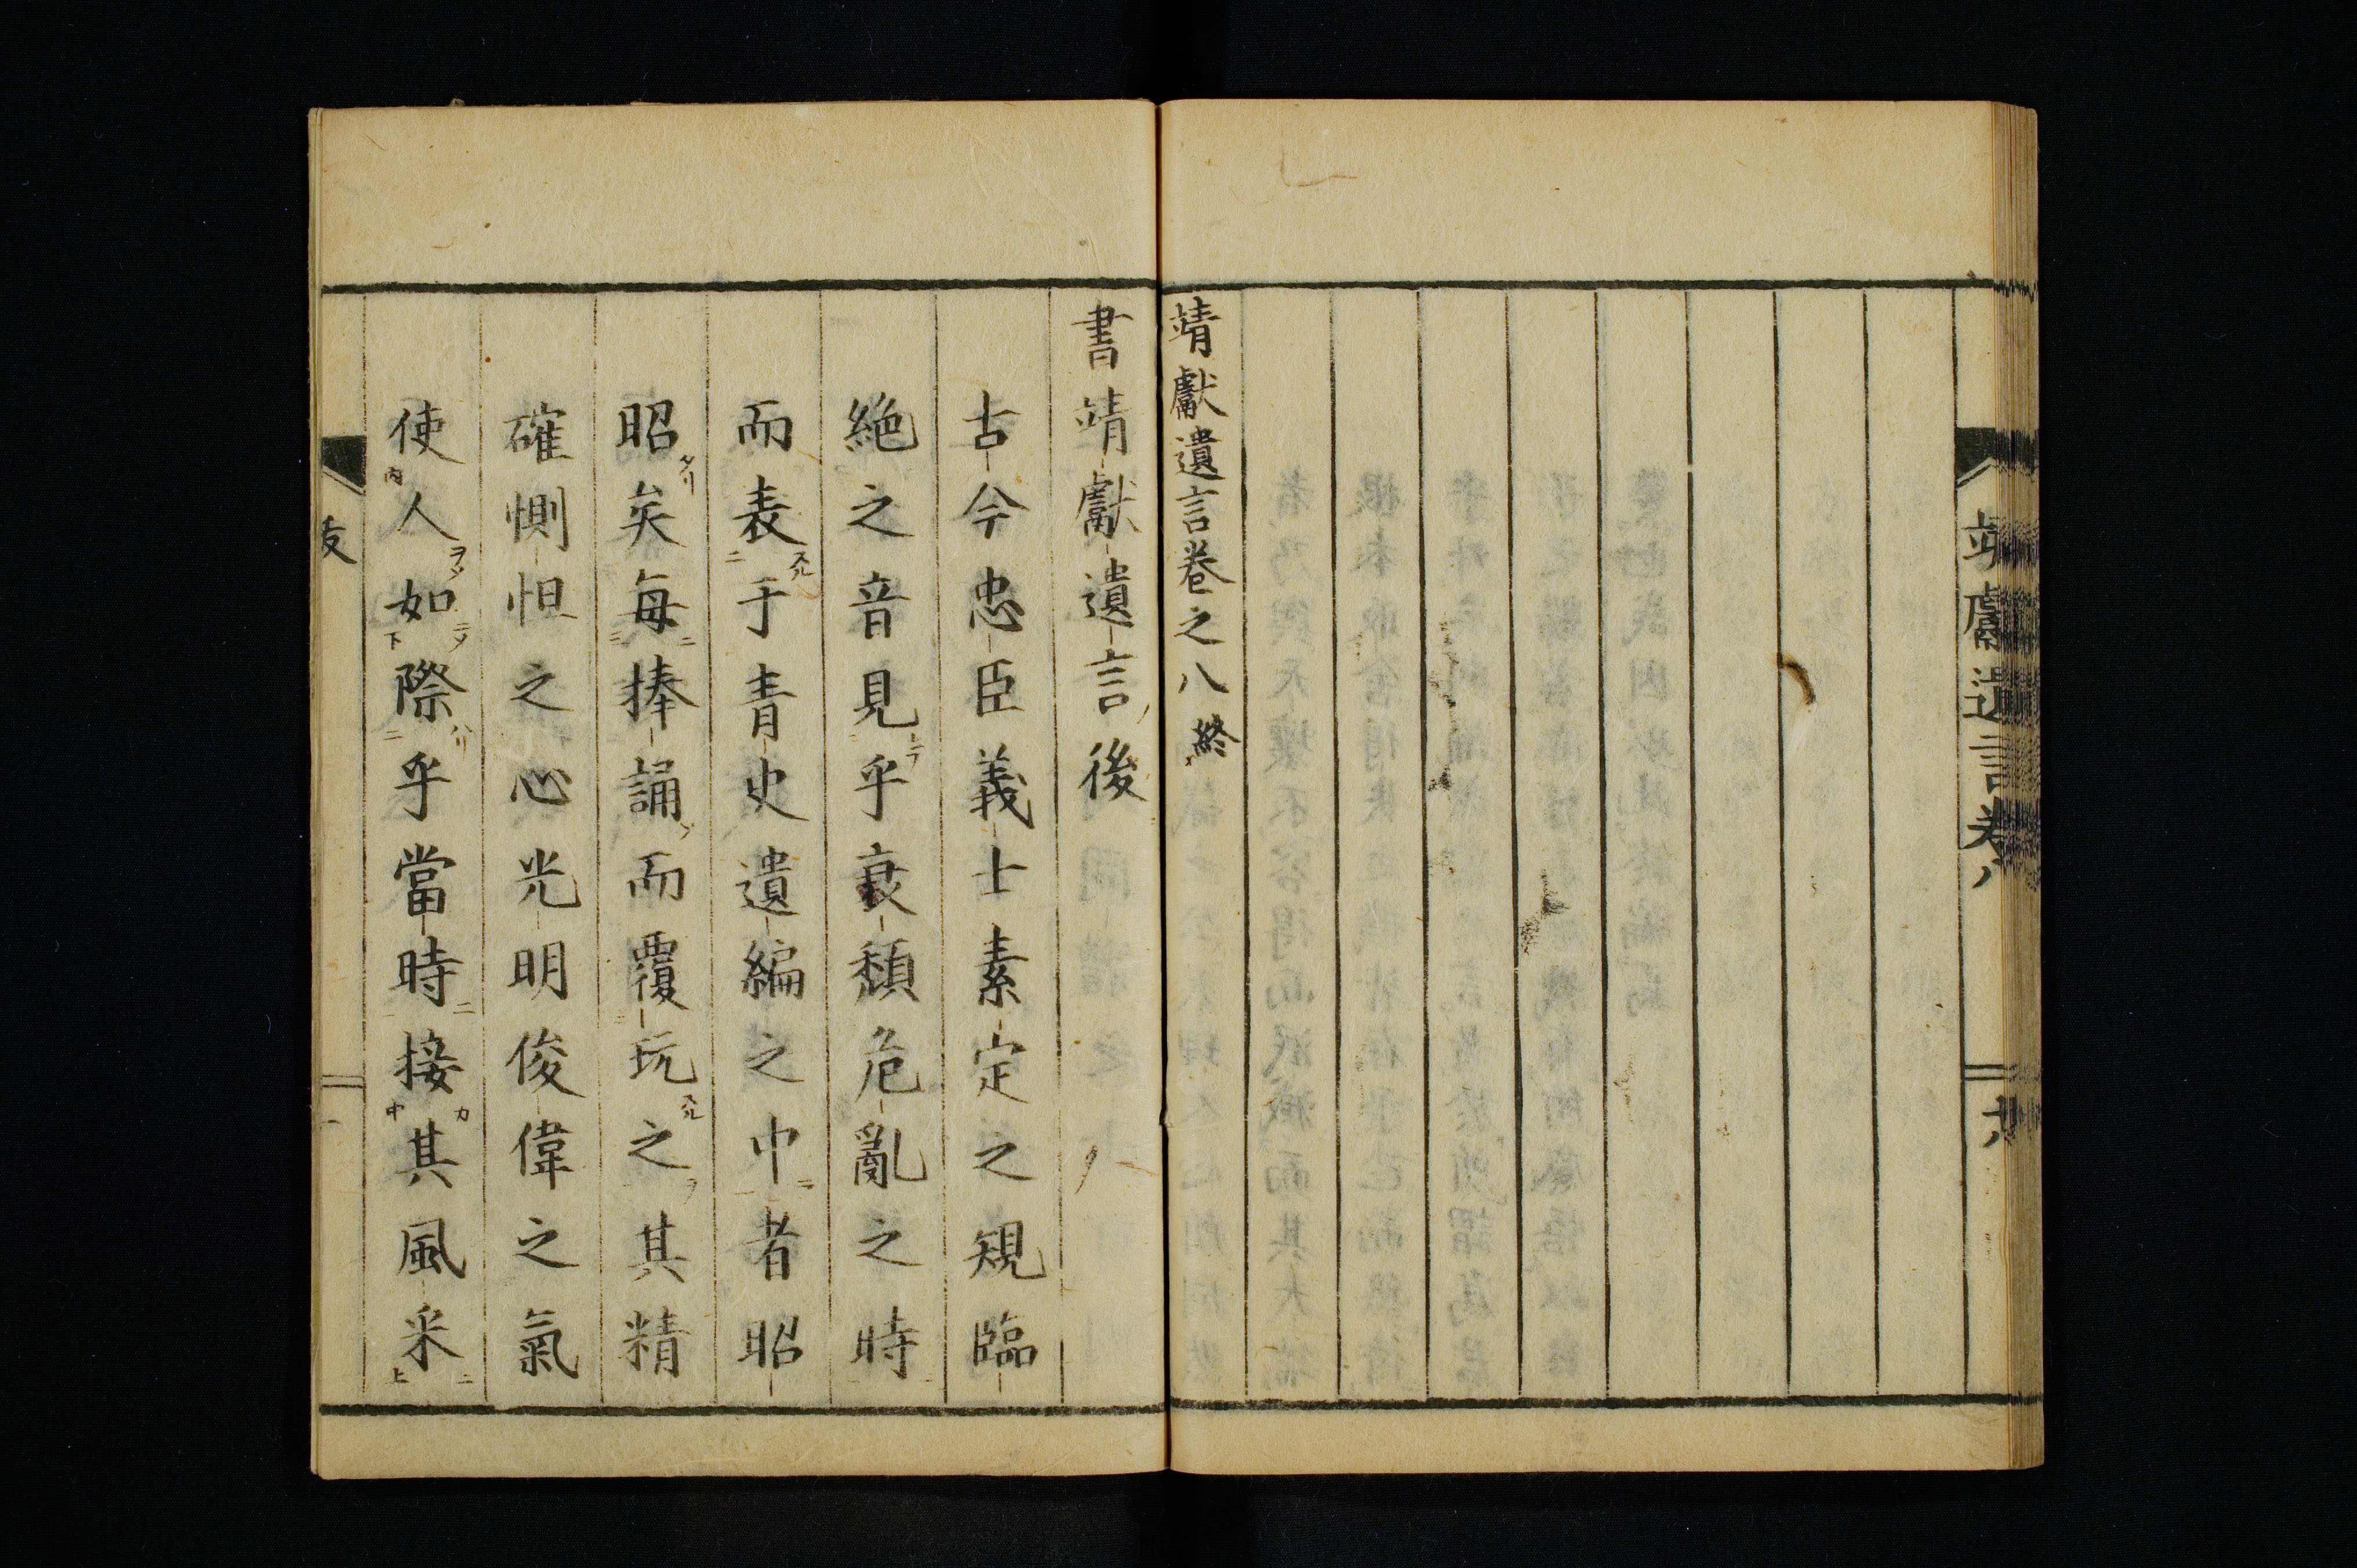 靖獻遺言卷八
靖獻遺言卷之八終
書靖獻遺言後
古今忠臣義士素定之規臨
絶之音見乎衰頽危亂之時
而表于青史遺編之中者昭
昭矣毎捧誦而覆玩之其精
確惻怛之心光明俊偉之氣
使人如際乎當時接其風采